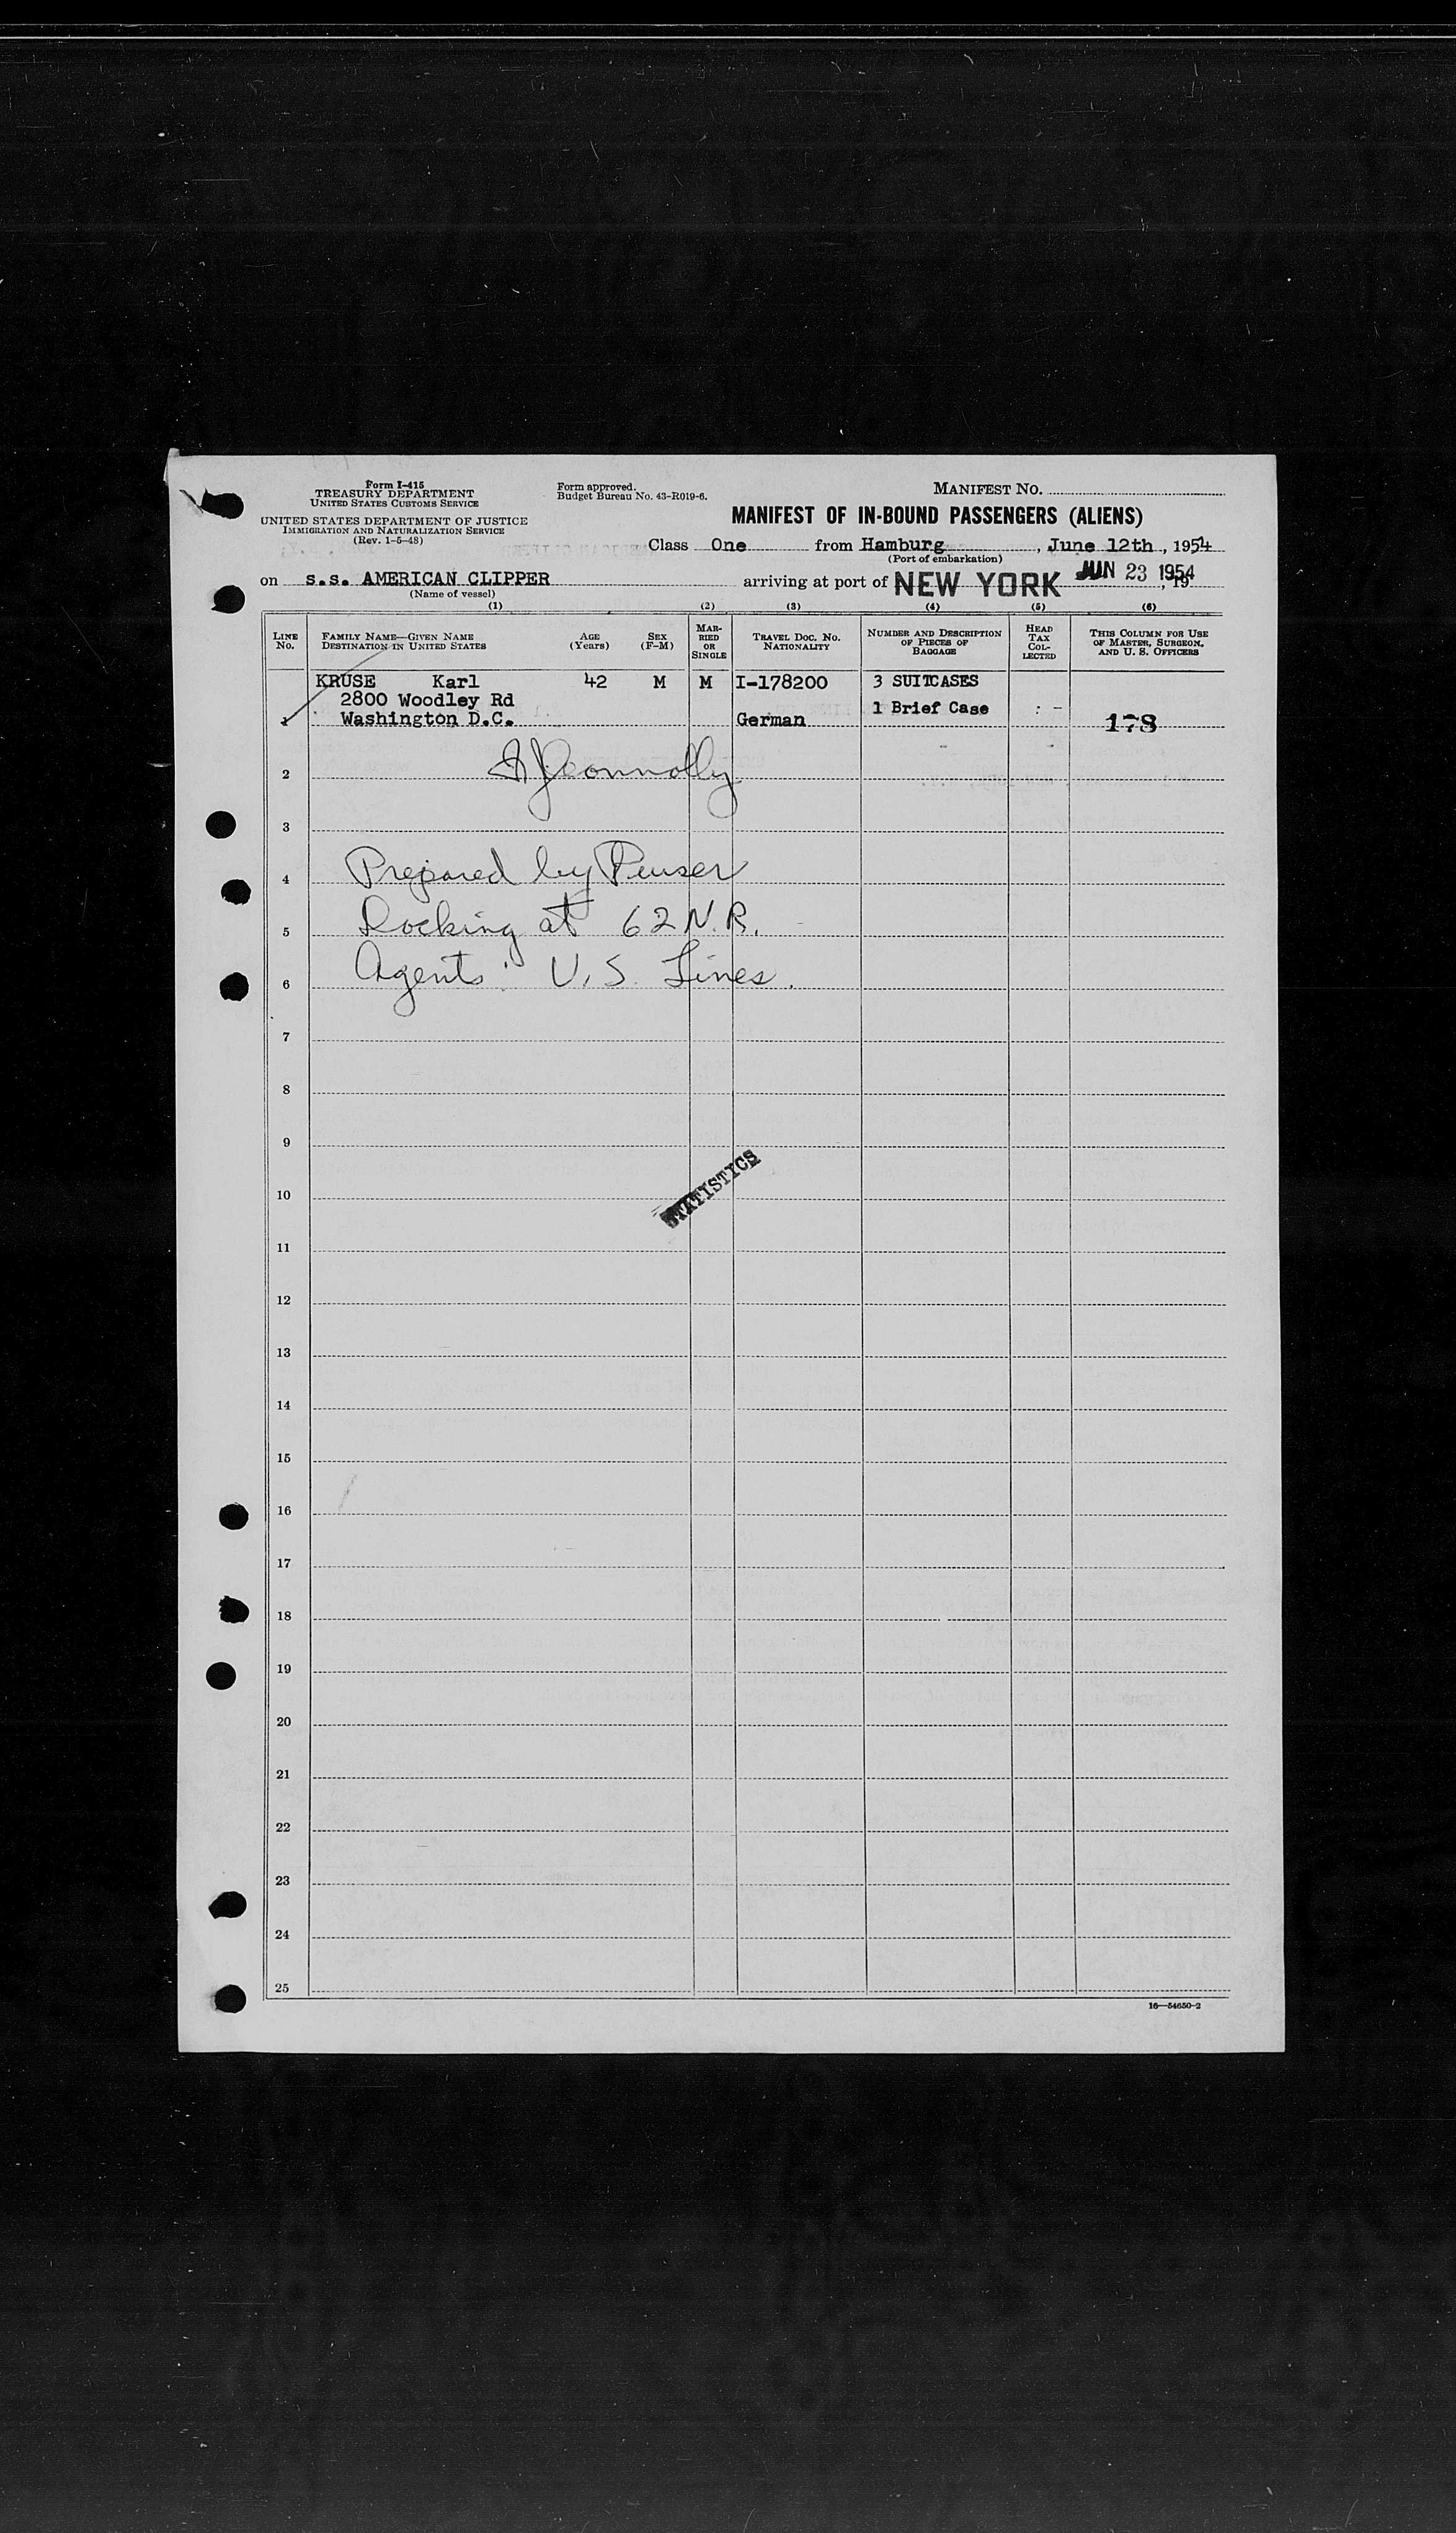 Form I-415
TREASURY DEPARTMENT
UNITED STATES CUSTOMS SERVICE
UNITED STATES DEPARTMENT OF JUSTICE
IMMIGRATION AND NATURALIZATION SERVICE
(Rev. 1-5-48)
Form approved.
Budget Bureau No. 43-R019-6.
MANIFEST NO.
MANIFEST OF IN-BOUND PASSENGERS (ALIENS)
Class One from Hamburg, June 12th, 1954
(Port of embarkation)
on s.s. AMERICAN CLIPPER arriving at port of NEW YORK JUN 23 1954, 19
(Name of vessel)
(1) (2) (3) (4) (5) (6)
LINE NO.
FAMILY NAME—GIVEN NAME
DESTINATION IN UNITED STATES
AGE (Years)
SEX (F-M)
MARRIED OR SINGLE
TRAVEL DOC. NO.
NATIONALITY
NUMBER AND DESCRIPTION OF PIECES OF BAGGAGE
HEAD TAX COLLECTED
THIS COLUMN FOR USE OF MASTER, SURGEON, AND U. S. OFFICERS
KRUSE Karl 42 M M I-178200 3 SUITCASES
2800 Woodley Rd 1 Brief Case : -
1 Washington D.C. German 178
2 Connolly
3
4 Prepared by Purser
5 Docking at 62 N.R.
6 Agents: U.S. Lines.
7
8
9
STATISTICS
10
11
12
13
14
15
16
17
18
19
20
21
22
23
24
25
16—54650-2